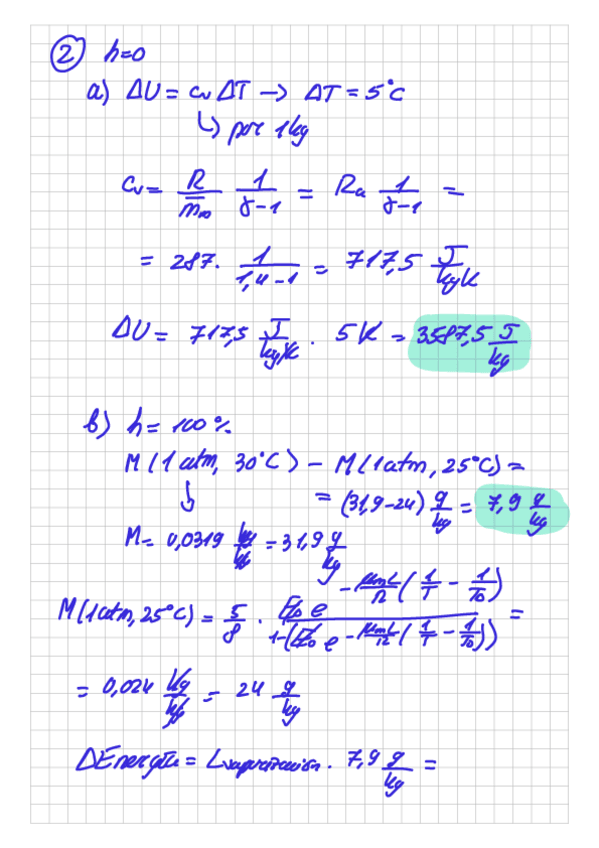 ② h=0
a) ΔU = cv ΔT → ΔT = 5°C
↳ por 1kg
cv = R/m∞ 1/(γ-1) = Ra 1/(γ-1) =
= 287. 1/(1,4-1) = 717,5 J/kgK
ΔU = 717,5 J/kgK . 5K = 3587,5 J/kg
b) h = 100%
M(1 atm, 30°C) - M(1atm, 25°C) =
= (31,9-24) g/kg = 7,9 g/kg
M = 0,0319 kg/kg = 31,9 g/kg
M(1atm, 25°C) = 5/8 . e -μmL/R (1/T - 1/T0) / 1-( e -μmL/R (1/T - 1/T0)) =
= 0,024 kg/kg = 24 g/kg
ΔEnergía = Lvaporización . 7,9 g/kg =